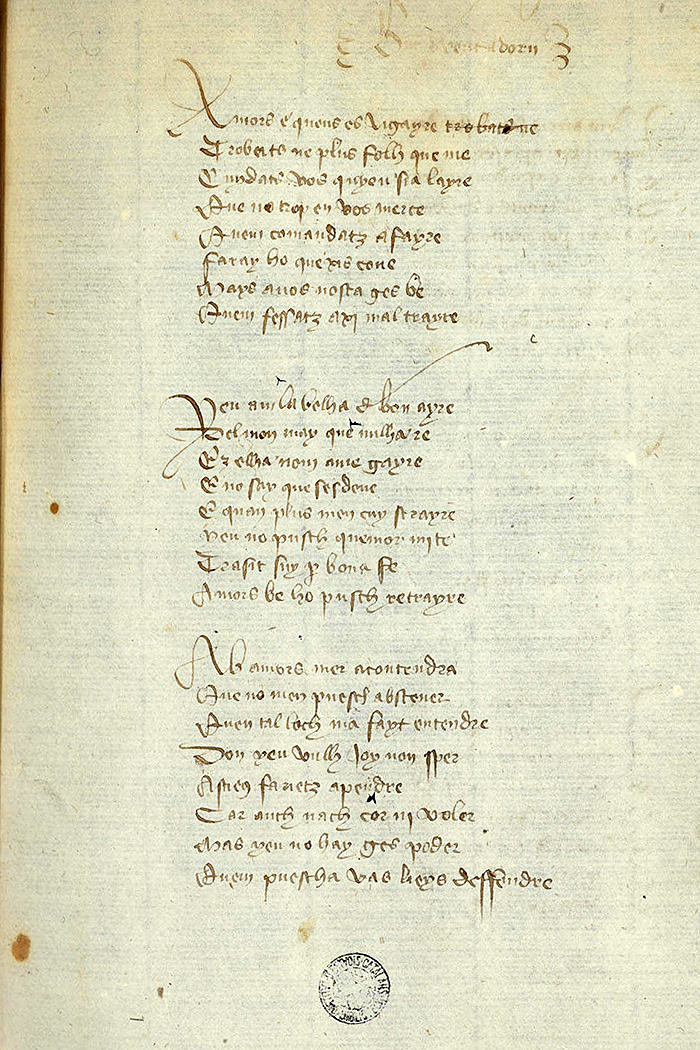 ventadorn
Amors e queus es vigayre trobats ne
Trobats ne plus folh que me
Cuydats vos quyeu sia layre
Que no trop en vos merce
Quem comandatz a fayre
Faray ho quexis cove
Mays avos nosta ges be
Quem fessatz axi mal trayre
Yeu am la belha de bon ayre
Del mon may que nulha re
Ez elha nom ame gayre
E no say que sesdeve
E quan plus men cuy strayre
Yeu no pusch quemor mi te
Trasit suy per bona fe
Amors be ho pusch retrayre
Ab amors mer acontendra
Que no men puesch abstener
Quen tal loch ma fayt entendre
Don yeu vulh joy non sper
farietz apendre
Car anch nach cor ni voler
Mas yeu no hay ges poder
Quem puescha vas lieys deffendre